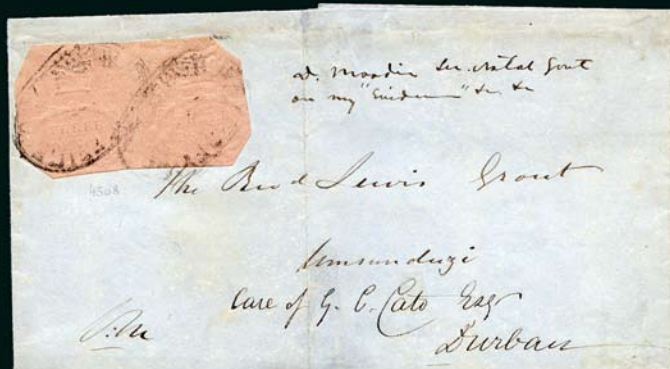 D. Moodie Sec. Natal Govt
on my "Evidence" &c &c
4508
The Revd Lewis Grout
Umsunduzi
Care of G. C. Cato Esq
Durban